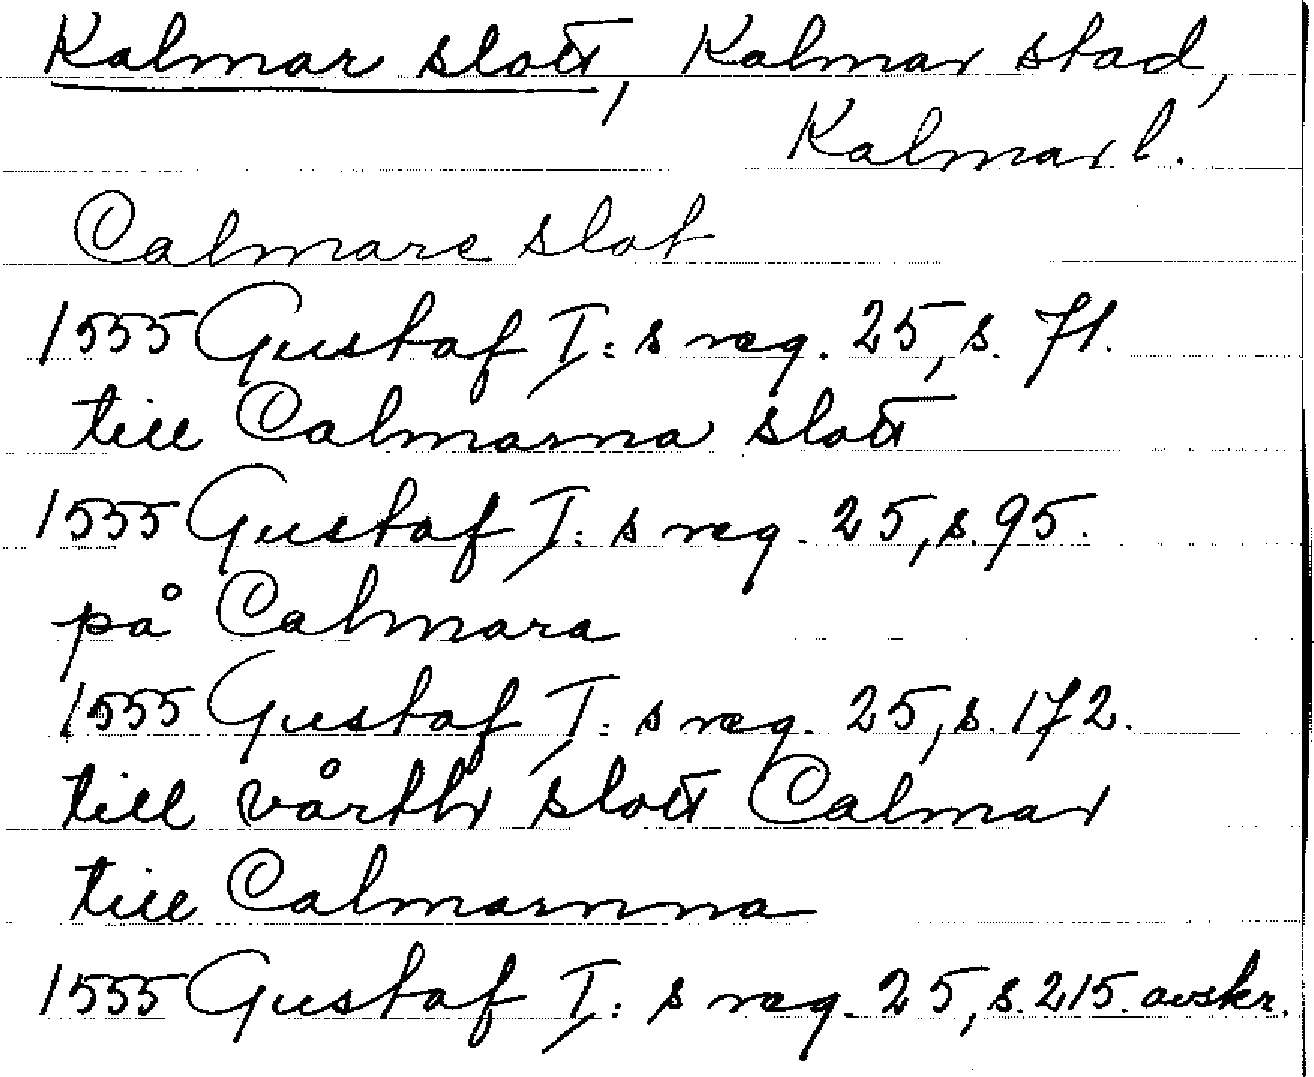 Kalmar slott, Kalmar stad,
Kalmar l.
Calmare slot
1555 Gustaf I:s reg. 25, s. 71.
till Calmarna slott
1555 Gustaf I:s reg. 25, s. 95.
på Calmara
1555 Gustaf I:s reg. 25, s. 172.
till vårthr slott Calmar
till Calmarnna
1555 Gustaf I:s reg. 25, s. 215. avskr.